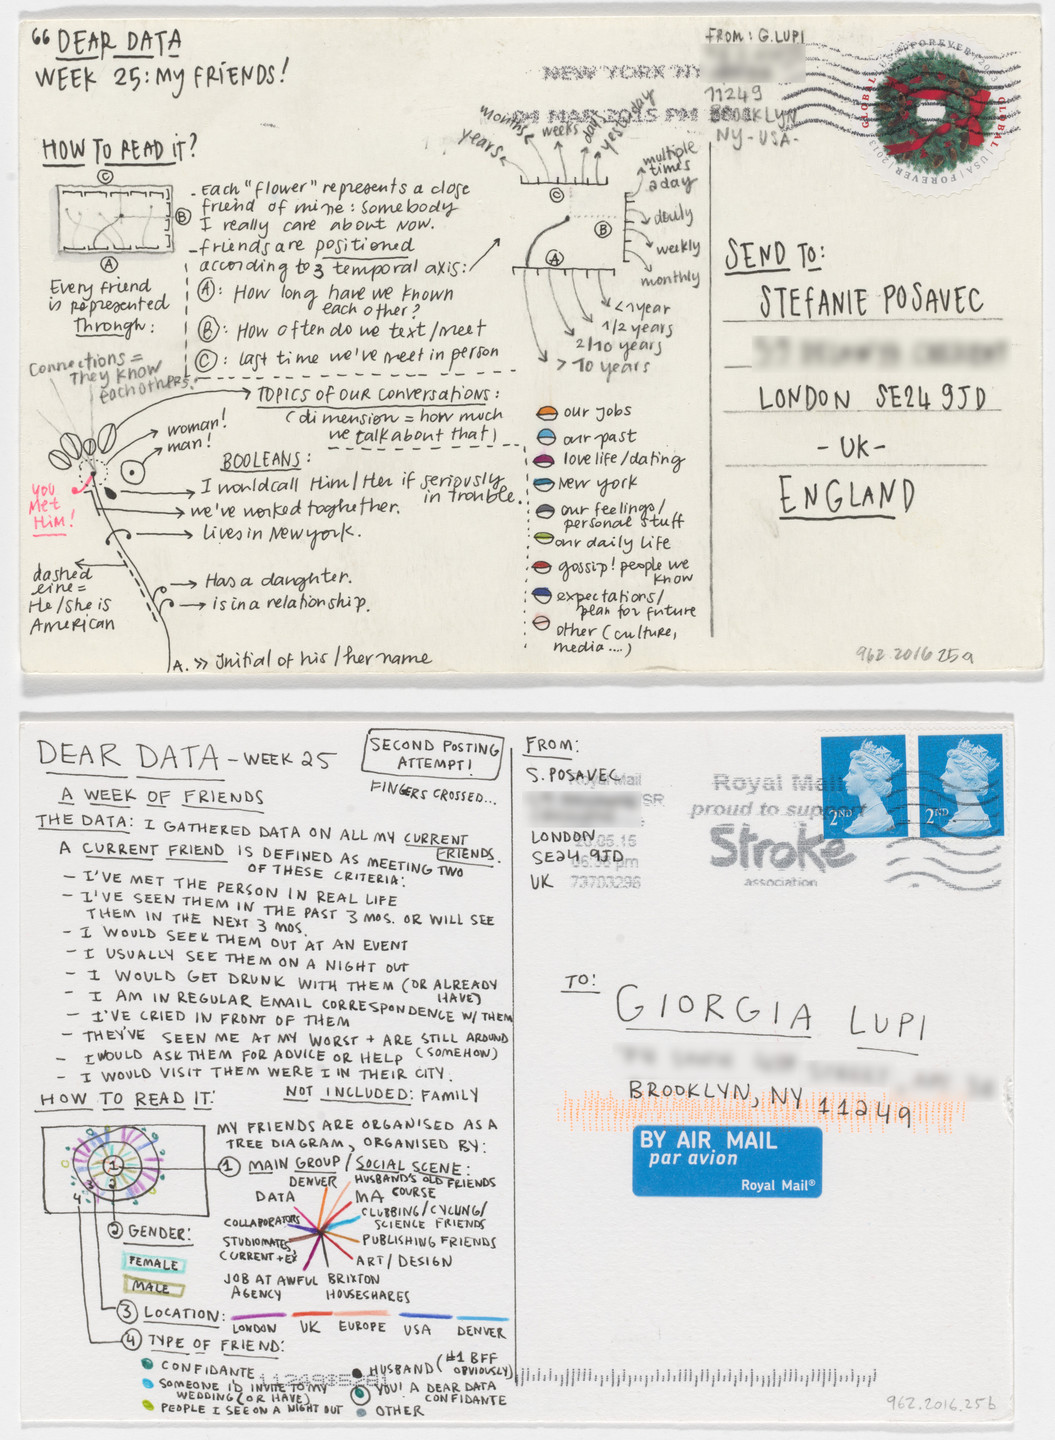 “ DEAR DATA
WEEK 25: MY FRIENDS!
HOW TO READ IT?
C
B
A
Every friend
is represented
through:
- Each "flower" represents a close
friend of mine: somebody
I really care about now.
- friends are positioned
according to 3 temporal axis:
A: How long have we known
each other?
B: How often do we text/meet
C: last time we've meet in person
years
months
weeks
days
yesterday
C
B
A
multiple
times
a day
daily
weekly
monthly
<1 year
1/2 years
2/10 years
> 10 years
Connections =
They know
each others.
TOPICS OF OUR CONVERSATIONS:
(dimension = how much
we talk about that)
woman!
man!
BOOLEANS:
I would call Him/Her if seriously
in trouble.
we've worked toghether.
lives in New york.
YOU
MET
HIM!
dashed
line =
He/she is
American
Has a daughter.
is in a relationship.
A. >> Initial of his/her name
our jobs
our past
love life/dating
New york
our feelings/
personal stuff
our daily life
gossip! people we
know
expectations/
plan for future
other (culture,
media ....)
FROM: G. LUPI
11249
BROOKLYN
NY - USA -
NEW YORK NY
04 MAR 2015 PM
GLOBAL | USA | FOREVER | 2013
SEND TO:
STEFANIE POSAVEC
LONDON SE24 9JD
- UK -
ENGLAND
962.2016.25a
DEAR DATA - WEEK 25
SECOND POSTING
ATTEMPT!
FINGERS CROSSED...
A WEEK OF FRIENDS
THE DATA: I GATHERED DATA ON ALL MY CURRENT
FRIENDS.
A CURRENT FRIEND IS DEFINED AS MEETING TWO
OF THESE CRITERIA:
- I'VE MET THE PERSON IN REAL LIFE
- I'VE SEEN THEM IN THE PAST 3 MOS. OR WILL SEE
THEM IN THE NEXT 3 MOS.
- I WOULD SEEK THEM OUT AT AN EVENT
- I USUALLY SEE THEM ON A NIGHT OUT
- I WOULD GET DRUNK WITH THEM (OR ALREADY
HAVE)
- I AM IN REGULAR EMAIL CORRESPONDENCE W/ THEM
- I'VE CRIED IN FRONT OF THEM
- THEY'VE SEEN ME AT MY WORST + ARE STILL AROUND
(SOMEHOW)
- I WOULD ASK THEM FOR ADVICE OR HELP
- I WOULD VISIT THEM WERE I IN THEIR CITY.
HOW TO READ IT:
NOT INCLUDED: FAMILY
1
2
3
4
MY FRIENDS ARE ORGANISED AS A
TREE DIAGRAM, ORGANISED BY:
1 MAIN GROUP / SOCIAL SCENE:
DENVER
HUSBAND'S OLD FRIENDS
DATA
MA COURSE
COLLABORATORS
CLUBBING/CYCLING/
SCIENCE FRIENDS
STUDIOMATES,
CURRENT + EX
PUBLISHING FRIENDS
ART/DESIGN
JOB AT AWFUL
AGENCY
BRIXTON
HOUSESHARES
2 GENDER:
FEMALE
MALE
3 LOCATION:
LONDON UK EUROPE USA DENVER
4 TYPE OF FRIEND:
CONFIDANTE
SOMEONE I'D INVITE TO MY
WEDDING (OR HAVE)
PEOPLE I SEE ON A NIGHT OUT
HUSBAND (#1 BFF
OBVIOUSLY)
YOU! A DEAR DATA
CONFIDANTE
OTHER
FROM:
S. POSAVEC
LONDON
SE24 9JD
UK
Royal Mail
73703296
Royal Mail
proud to support
Stroke
association
2ND
2ND
TO:
GIORGIA LUPI
BROOKLYN, NY 11249
BY AIR MAIL
par avion
Royal Mail®
962.2016.25b